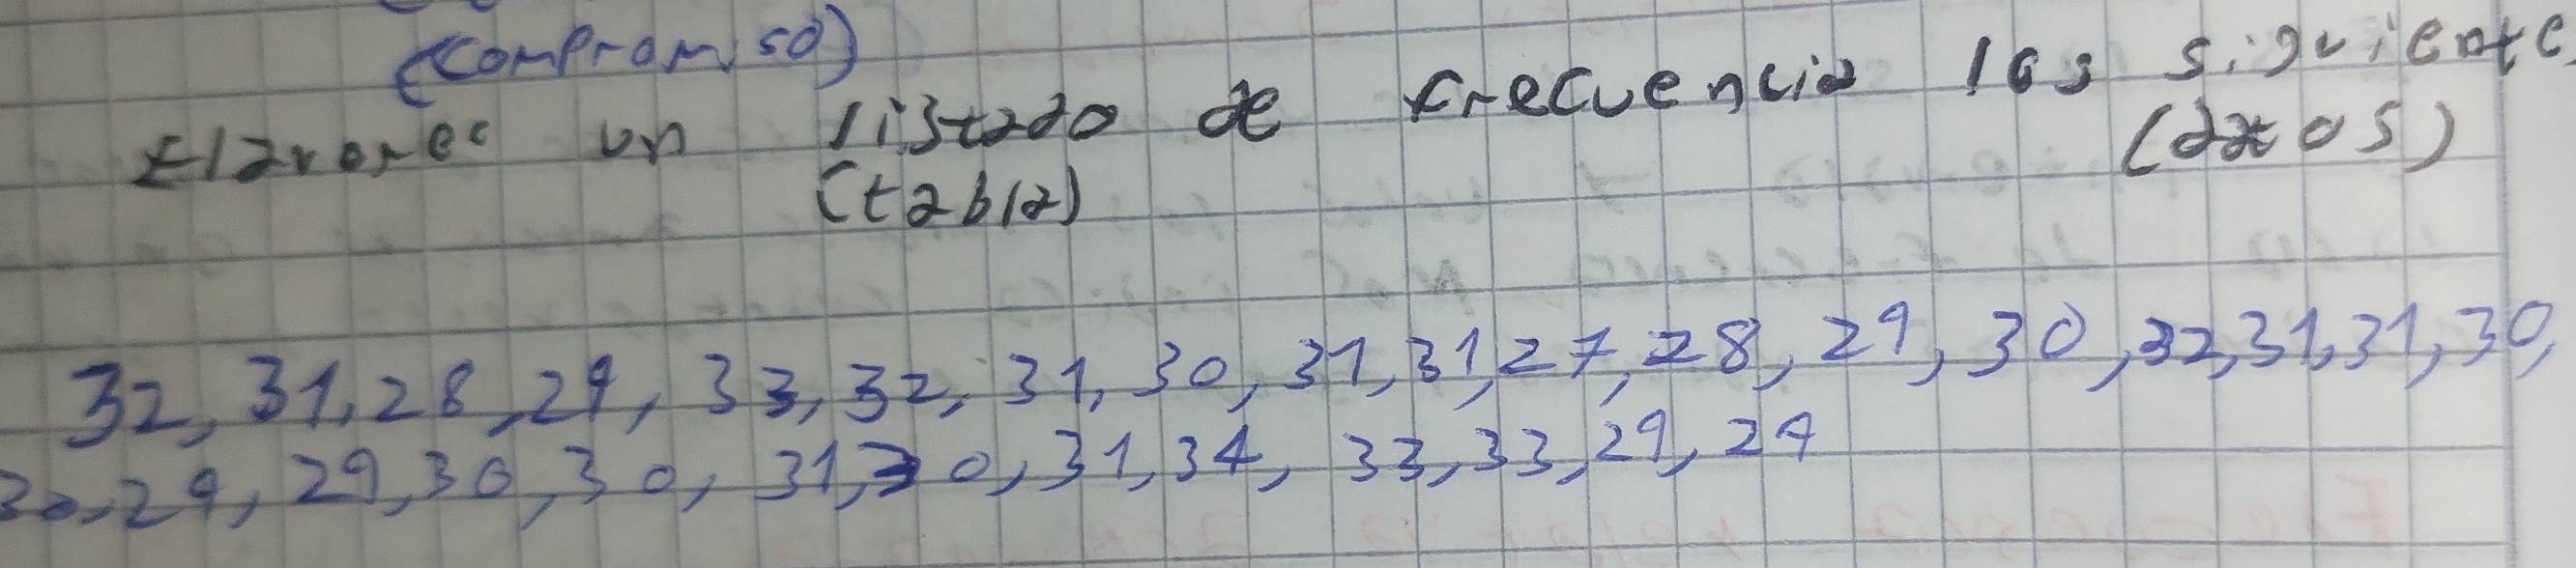 (compromiso)
Elavorec un listado de frecuencia los siguiente
(tabla) (datos)
32, 31, 28, 29, 33, 32, 31, 30, 31, 31, 27, 28, 29, 30, 32, 31, 31, 30,
30, 29, 29, 30, 30, 31, 30, 31, 34, 33, 33, 29, 29